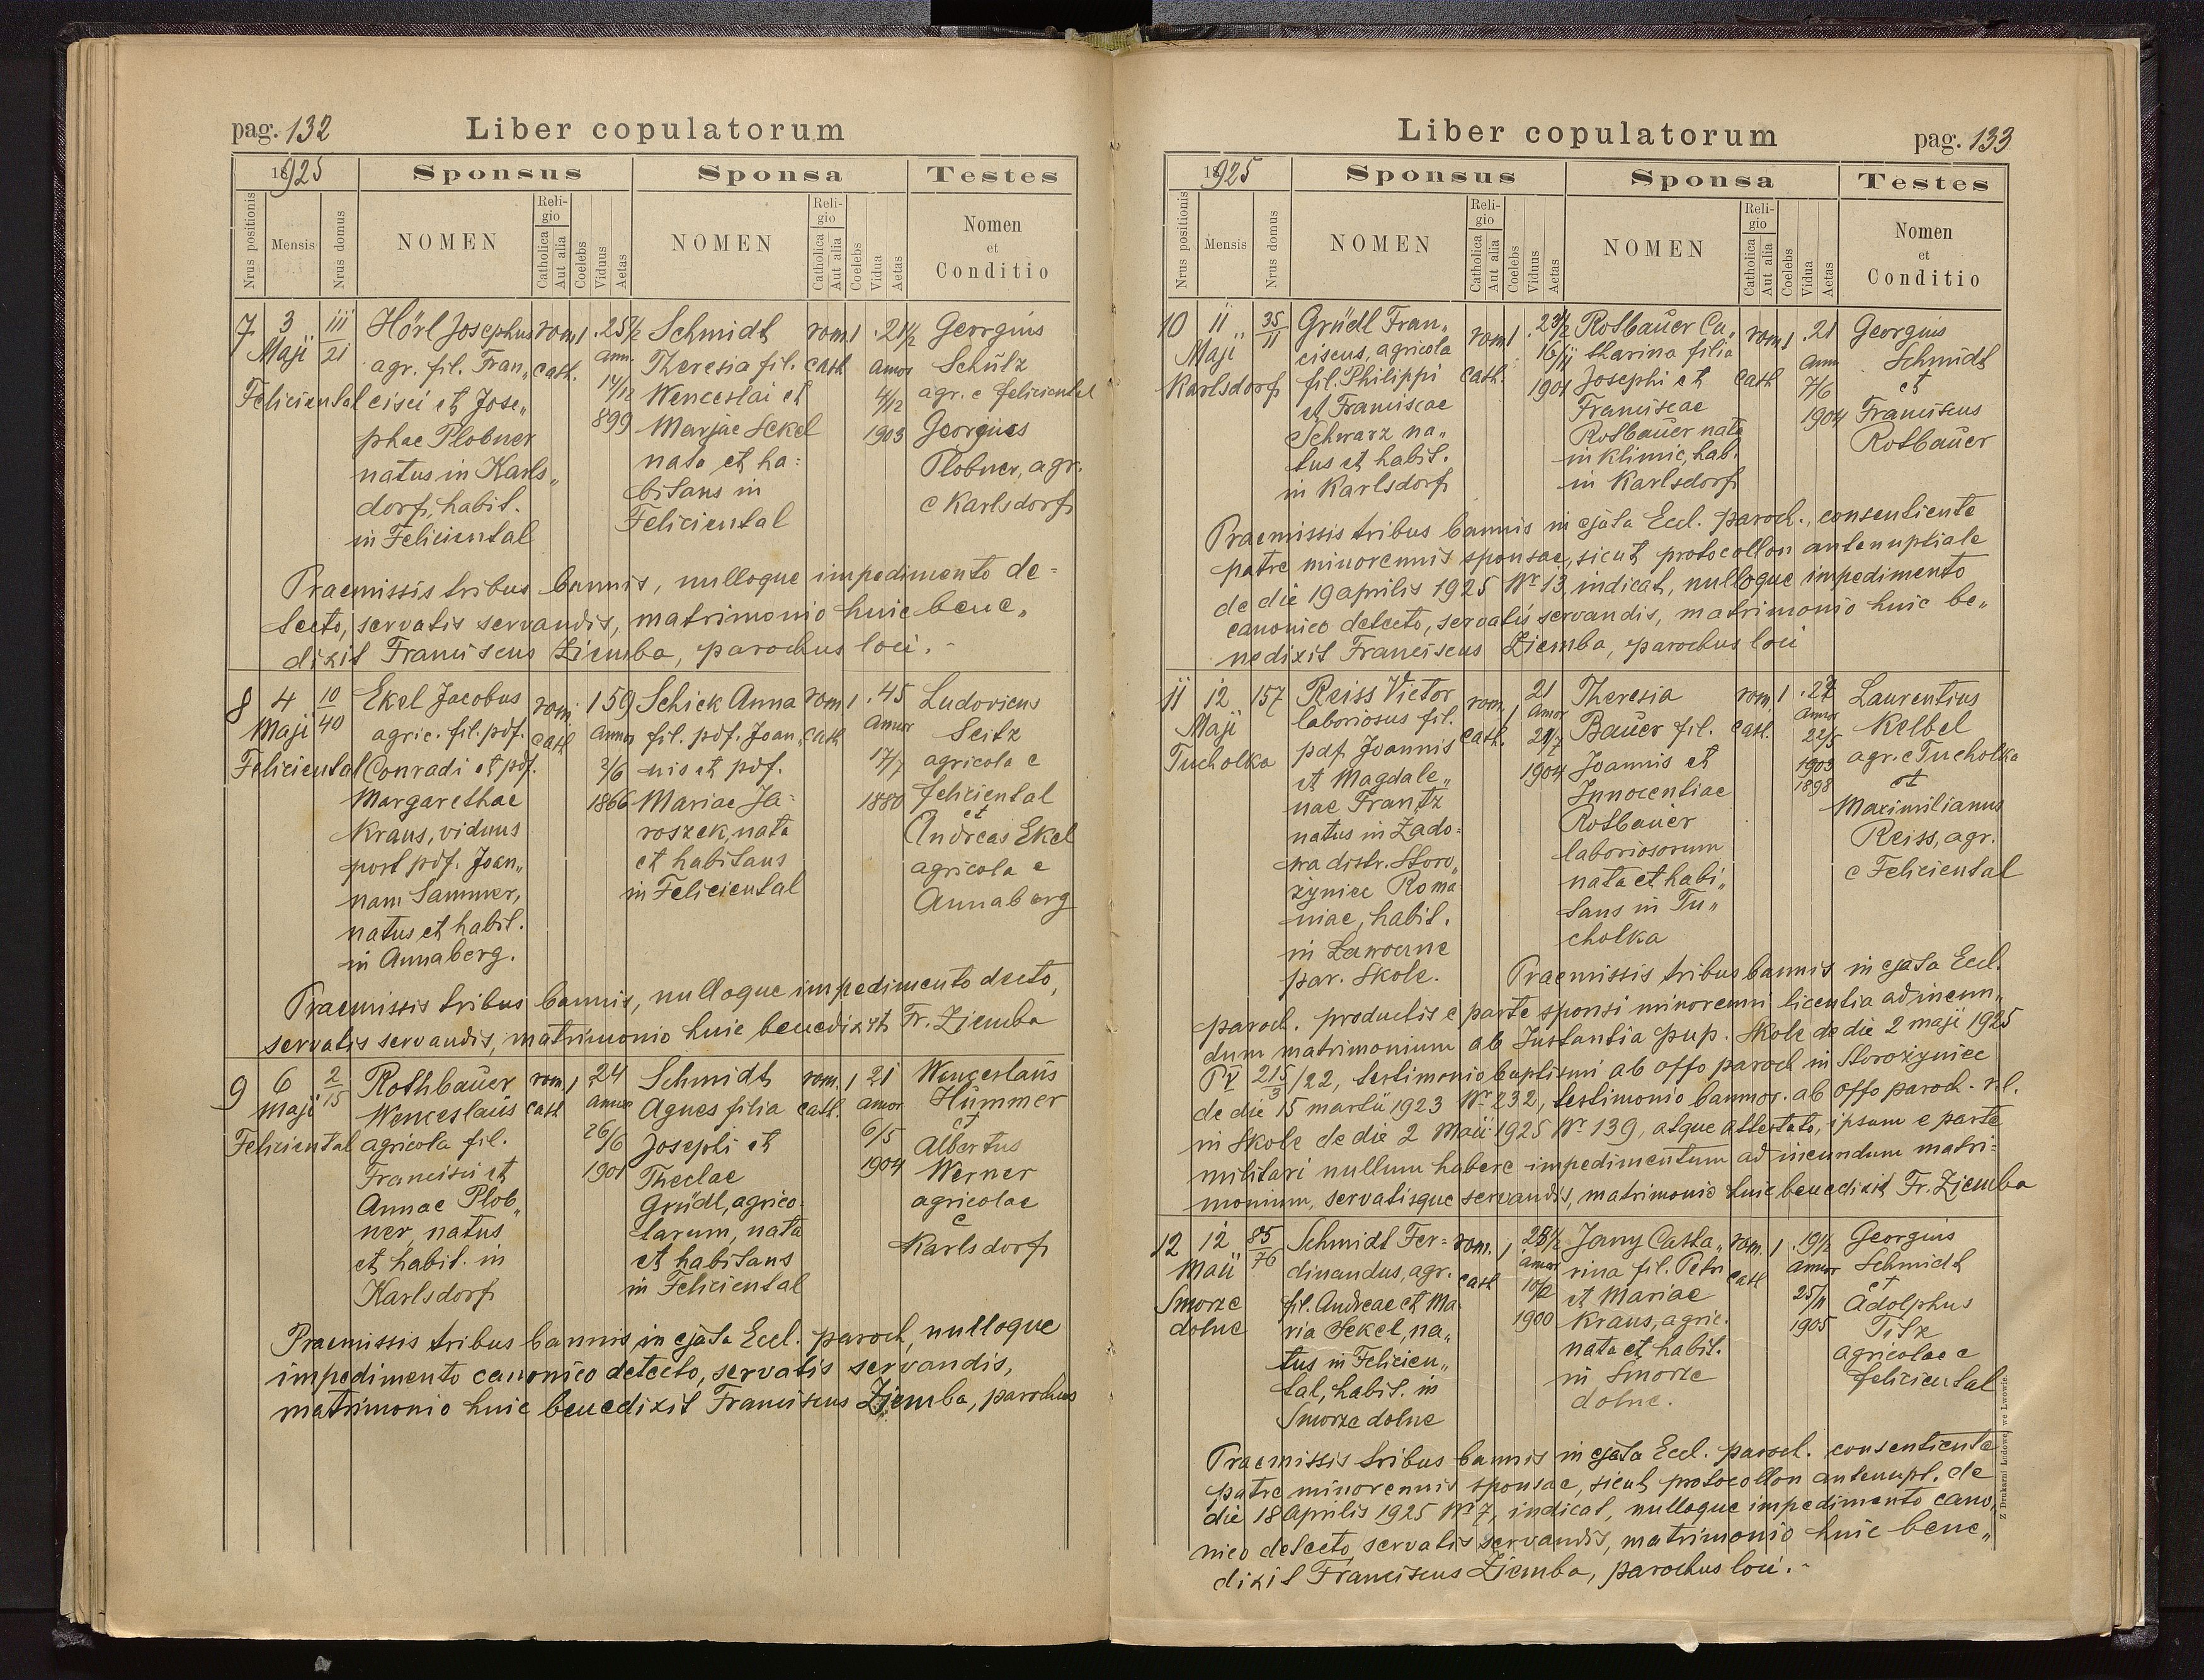 pag. 132
Liber copulatorum
1925
Sponsus
Sponsa
Testes
Nrus positionis
Mensis
Nrus domus
NOMEN
Religio
Catholica
Aut alia
Coelebs
Viduus
Aetas
NOMEN
Religio
Catholica
Aut alia
Coelebs
Vidua
Aetas
Nomen
et
Conditio
7
3
Maji
Feliciental
iii
21
Hörl Josephus
agr. fil. Fran„
cisci et Jose„
phae Plobner
natus in Karls„
dorf, habit.
in Feliciental
rom 1
cath.
25½
ann.
14/12
899
Schmidt
Theresia fil.
Wenceslai et
Marjae Sekel
nata et ha:
bitans in
Feliciental
rom 1
cath
21½
anor
4/12
1903
Georgius
Schütz
agr. e Feliciental
Georgius
Plobner, agr.
e Karlsdorf
Praemissis tribus bannis, nulloque impedimento de=
tecto, servatis servandis, matrimonio huic bene„
dixit Franciscus Ziemba, parochus loci.-
8
4
Maji
Feliciental
10
40
Ekel Jacobus
agric. fil. pdf.
Conradi et pdf.
Margarethae
Kraus, viduus
post pdf. Joan„
nam Sammer,
natus et habit.
in Annaberg.
rom.
cath
1 59
annor
2/6
1866
Schick Anna
fil. pdf. Joan„
nis et pdf.
Mariae Ja=
roszek, nata
et habitans
in Feliciental
rom 1
cath
45
annor
17/7
1880
Ludovicus
Seitz
agricola e
Feliciental
et
Andreas Ekel
agricola e
Annaberg
Praemissis tribus bannis, nulloque impedimento decto,
servatis servandis, matrimonio huic benedixit Fr. Ziemba
9
6
Maji
Feliciental
2
15
Rothbaüer
Wenceslaüs
agricola fil.
Francisci et
Annae Plob„
ner, natus
et habit. in
Karlsdorf
rom. 1
cath
24
annor
26/6
1901
Schmidt
Agnes filia
Josephi et
Theclae
Grüdl, agrico=
larum, nata
et habitans
in Feliciental
rom. 1
cath.
21
anor
6/5
1904
Wenceslaüs
Hümmer
et
Albertus
Werner
agricolae
e
Karlsdorf
Praemissis tribus bannis, in ejata Eccl. paroch, nulloque
impedimento canonico detecto, servatis servandis,
matrimonio huic benedixit Franciscus Ziemba, parochus
Liber copulatorum
pag. 133
1925
Sponsus
Sponsa
Testes
Nrus positionis
Mensis
Nrus domus
NOMEN
Religio
Catholica
Aut alia
Coelebs
Viduus
Aetas
NOMEN
Religio
Catholica
Aut alia
Coelebs
Vidua
Aetas
Nomen
et
Conditio
10
11
Maji
Karlsdorf
35
11
Grüdl Fran„
ciscus, agricola
fil. Philippi
et Franciscae
Schwarz na„
tus et habit.
in Karlsdorf
rom 1
cath.
1901
Rotbaüer Ca„
tharina filia
Josephi et
Franciscae
Rotbaüer nata
in Klimiec, hab.
in Karlsdorf
rom 1
cath
21
ann
7/6
1904
Georgius
Schmidt
et
Franciscus
Rotbaüer
Praemissis tribus bannis in ejata Eccl. paroch., consentiente
patre minorennis sponsae, sicut protocollon antenuptiale
de die 19 aprilis 1925 Nr 13, indicat, nulloque impedimento
canonico detecto, servatis servandis, matrimonio huic be„
nedixit Franciscus Ziemba, parochus loci
11
12
Maji
Tucholka
157
Reiss Victor
laboriosus fil.
pdf Joannis
et Magdale„
nae Frantz
natus in Zado=
wa distr. Storo„
zyniec Roma
niae, habit.
in Lawoczne
par. Skole.
rom. 1
cath.
21
anor
1904
Theresia
Baüer fil.
Joannis et
Innocentiae
Rotbaüer
laboriosorum
nata et habi„
tans in Tu„
cholka
rom 1
cath.
27
annor
22/5
1903
1898
Laurentius
Kelbel
agr. e Tucholka
et
Maximilianus
Reiss, agr.
e Feliciental
Praemissis tribus bannis in ejata Eccl.
paroch. productis e parte sponsi minorenni licentia ad ineun„
dum matrimonium ab Instantia pup. Skole de die 2 maji 1925
215/22, testimonio baptismi ab offo paroch in Storozyniec
de die 15 martii 1923 Nr 232, testimonio bannor. ab offo paroch. r. l.
in Skole de die 2 Maii 1925 Nr 139, atque attestato, ipsum e parte
militari nullum habere impedimentum ad ineundum matri=
monium, servatisque servandis, matrimonio huic benedixit Fr. Ziemba
12
12
Maii
Smorze
dolne
85
76
Schmidt Fer=
dinandus, agr.
fil. Andreae et Ma
ria Sekel, na„
tus in Felicien„
tal, habit. in
Smorze dolne
rom. 1
cath
anor
1900
Jany Catha„
rina fil. Petri
et Mariae
Kraus, agric.
nata et habit.
in Smorze
dolne.
rom. 1
cath
19½
annor
25/11
1905
Georgius
Schmidt
et
Adolphus
Titz
agricolae e
Feliciental
Praemissis tribus bannis in ejata Eccl. paroch. consentiente
patre minorennis sponsae, sicut protocollon antenupt. de
die 18 Aprilis 1925 Nr 7, indicat, nulloque impedimento cano„
nico detecto, servatis servandis, matrimonio huic bene„
dixit Franciscus Ziemba, parochus loci.-
Z Drukarni Ludowej we Lwowie.